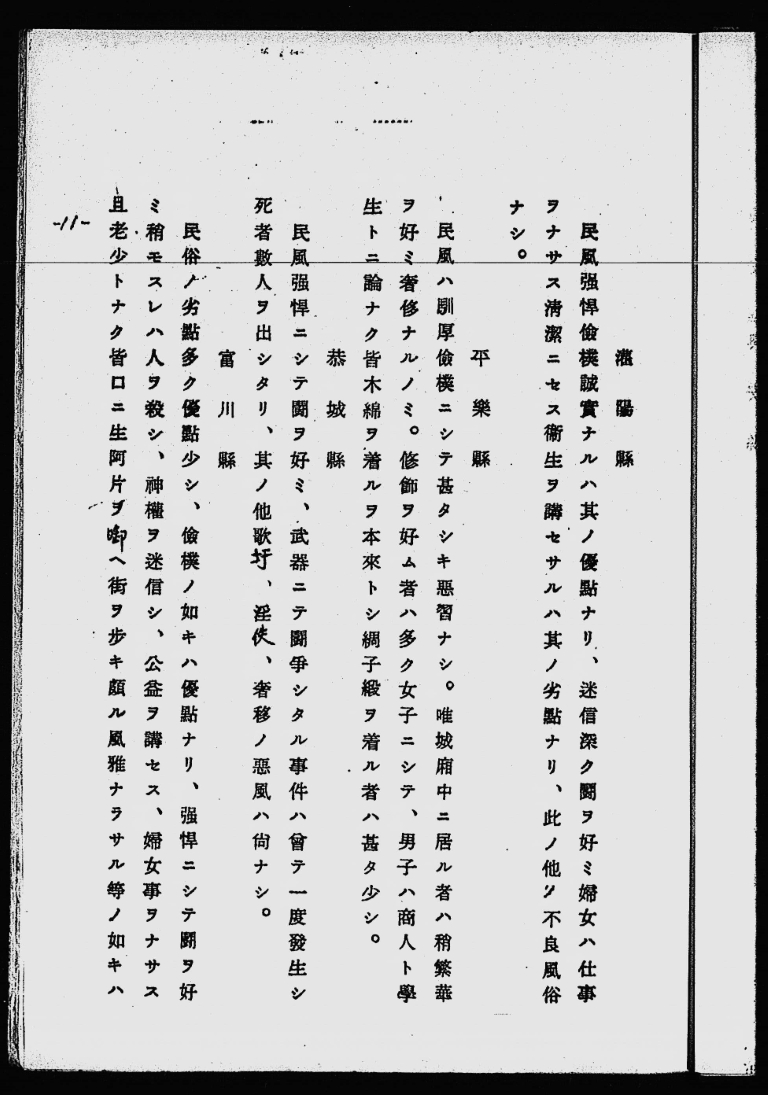 灌陽縣
民風强悍儉樸誠實ナルハ其ノ優點ナリ、迷信深ク鬪ヲ好ミ婦女ハ仕事
ヲナサス淸潔ニセス衞生ヲ講セサルハ其ノ劣點ナリ、此ノ他ノ不良風俗
ナシ。
平樂縣
民風ハ馴厚儉樸ニシテ甚タシキ惡習ナシ。唯城廂中ニ居ル者ハ稍繁華
ヲ好ミ奢修ナルノミ。修飾ヲ好ム者ハ多ク女子ニシテ、男子ハ商人ト學
生トニ論ナク皆木綿ヲ着ルヲ本來トシ綢子緞ヲ着ル者ハ甚タ少シ。
恭城縣
民風强悍ニシテ鬪ヲ好ミ、武器ニテ鬪爭シタル事件ハ曾テ一度發生シ
死者數人ヲ出シタリ、其ノ他歌圩、淫佚、奢移ノ惡風ハ尙ナシ。
富川縣
民俗ノ劣點多ク優點少シ、儉樸ノ如キハ優點ナリ、强悍ニシテ鬪ヲ好
ミ稍モスレハ人ヲ殺シ、神權ヲ迷信シ、公益ヲ講セス、婦女事ヲナサス
且老少トナク皆口ニ生阿片ヲ啣ヘ街ヲ步キ頗ル風雅ナラサル等ノ如キハ
-11-